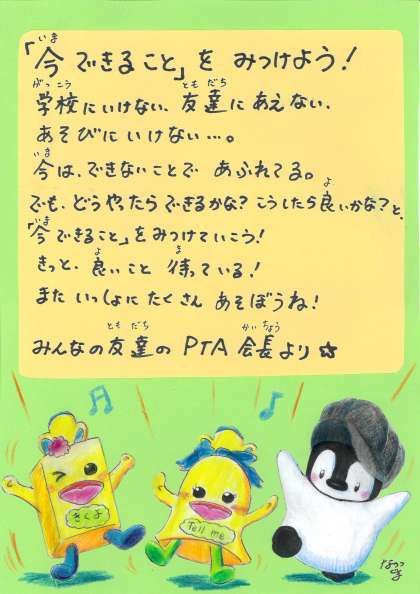 「今できること」を みつけよう!
学校にいけない、友達にあえない、
あそびに いけない…。
今は、できないことで あふれてる。
でも、どうやったら できるかな? こうしたら良いかな?と、
「今できること」をみつけていこう!
きっと、良いこと 待っている!
また いっしょに たくさん あそぼうね!
みんなの友達の PTA 会長より☆
きくよ
Tell me